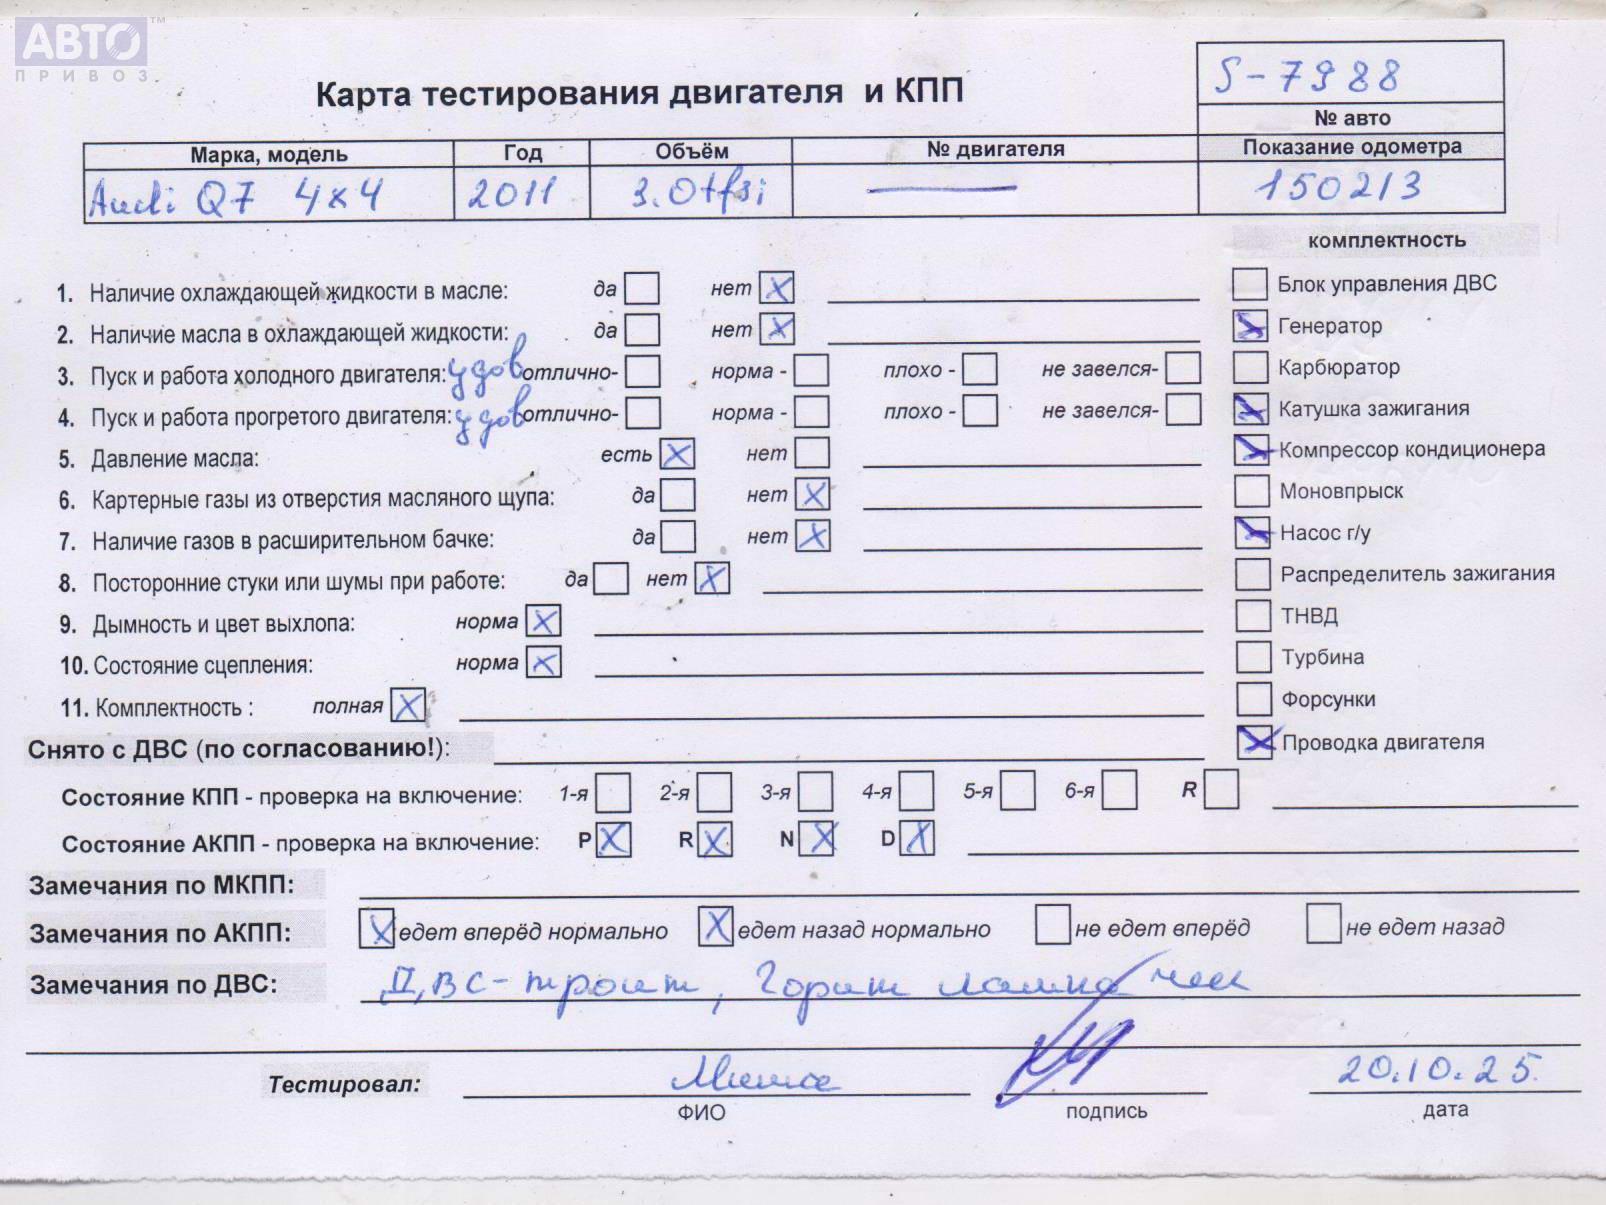 АВТО™
ПРИВОЗ
S-7988
Карта тестирования двигателя и КПП
№ авто
Марка, модель Год Объём № двигателя Показание одометра
Audi Q7 4x4 2011 3.0tfsi — 150213
комплектность
1. Наличие охлаждающей жидкости в масле: да нет X
Блок управления ДВС
2. Наличие масла в охлаждающей жидкости: да нет X
Генератор X
3. Пуск и работа холодного двигателя: удов отлично- норма - плохо - не завелся-
Карбюратор
4. Пуск и работа прогретого двигателя: удов отлично- норма - плохо - не завелся-
Катушка зажигания X
5. Давление масла: есть X нет
Компрессор кондиционера X
6. Картерные газы из отверстия масляного щупа: да нет X
Моновпрыск
7. Наличие газов в расширительном бачке: да нет X
Насос г/у X
8. Посторонние стуки или шумы при работе: да нет X
Распределитель зажигания
9. Дымность и цвет выхлопа: норма X
ТНВД
10. Состояние сцепления: норма X
Турбина
11. Комплектность : полная X
Форсунки
Снято с ДВС (по согласованию!):
Проводка двигателя X
Состояние КПП - проверка на включение: 1-я 2-я 3-я 4-я 5-я 6-я R
Состояние АКПП - проверка на включение: P X R X N X D X
Замечания по МКПП:
Замечания по АКПП: X едет вперёд нормально X едет назад нормально не едет вперёд не едет назад
Замечания по ДВС: ДВС-троит, Горит лампа чек
Тестировал: Миша 20.10.25.
ФИО подпись дата